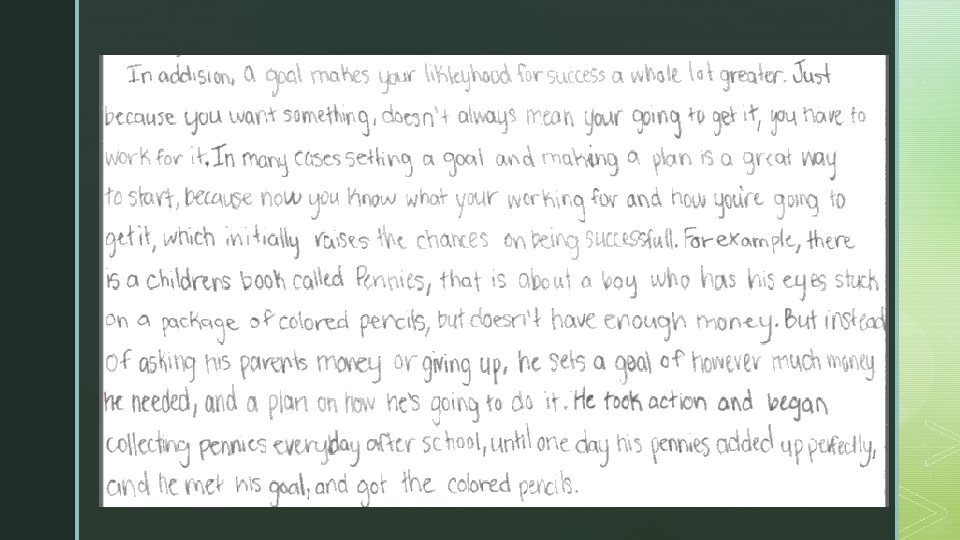 In addision, a goal makes your likleyhood for success a whole lot greater. Just
because you want something, doesn't always mean your going to get it, you have to
work for it. In many cases setting a goal and making a plan is a great way
to start, because now you know what your working for and how you're going to
get it, which initially raises the chances on being successfull. For example, there
is a childrens book called Pennies, that is about a boy who has his eyes stuck
on a package of colored pencils, but doesn't have enough money. But instead
of asking his parents money or giving up, he sets a goal of however much money
he needed, and a plan on how he's going to do it. He took action and began
collecting pennies everyday after school, until one day his pennies added up perfectly,
and he met his goal, and got the colored pencils.